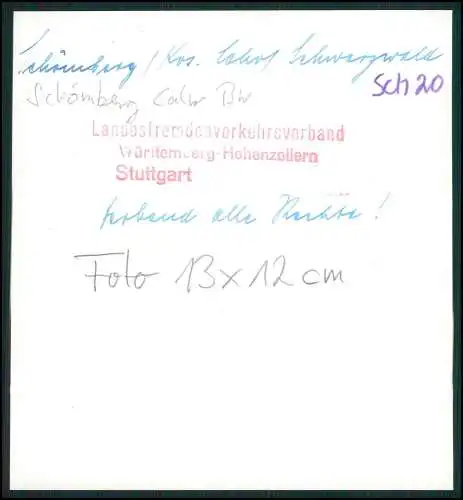 Schömberg / Krs. Calw / Schwarzwald
Sch 20
Schömberg Calw BW
Landesfremdenverkehrsverband
Württemberg-Hohenzollern
Stuttgart
alle Rechte!
Foto 13 x 12 cm